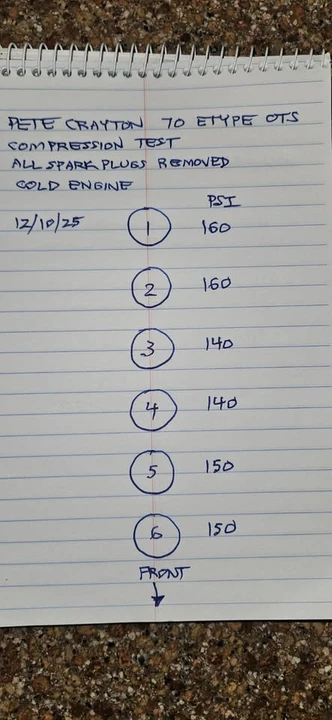 PETE CRAYTON 70 ETYPE OTS
COMPRESSION TEST
ALL SPARK PLUGS REMOVED
COLD ENGINE
PSI
12/10/25 1 160
2 160
3 140
4 140
5 150
6 150
FRONT